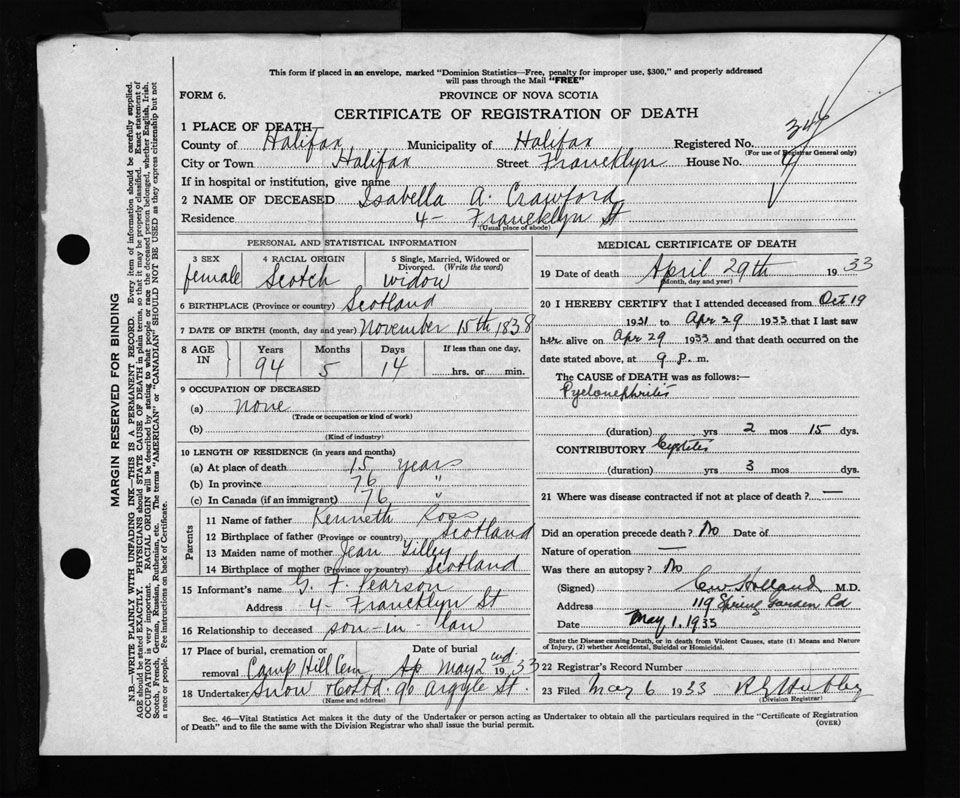 This form if placed in an envelope, marked "Dominion Statistics—Free, penalty for improper use, $300," and properly addressed
will pass through the Mail "FREE"
FORM 6.
PROVINCE OF NOVA SCOTIA
CERTIFICATE OF REGISTRATION OF DEATH
1 PLACE OF DEATH—
County of Halifax Municipality of Halifax Registered No. 346
(For use of Registrar General only)
City or Town Halifax Street Francklyn House No. 4
If in hospital or institution, give name
2 NAME OF DECEASED Isabella A. Crawford
Residence 4- Francklyn St
(Usual place of abode)
PERSONAL AND STATISTICAL INFORMATION
3 SEX 4 RACIAL ORIGIN 5 Single, Married, Widowed or
Divorced. (Write the word)
female Scotch widow
6 BIRTHPLACE (Province or country) Scotland
7 DATE OF BIRTH (month, day and year) November 15th, 1838
8 AGE IN Years Months Days If less than one day,
94 5 14 hrs. or min.
9 OCCUPATION OF DECEASED
(a) none
(Trade or occupation or kind of work)
(b)
(Kind of industry)
10 LENGTH OF RESIDENCE (in years and months)
(a) At place of death 15 years
(b) In province 76 "
(c) In Canada (if an immigrant) 76 "
Parents
11 Name of father Kenneth Ross
12 Birthplace of father (Province or country) Scotland
13 Maiden name of mother Jean Tilley
14 Birthplace of mother (Province or country) Scotland
15 Informant's name G. F. Pearson
Address 4- Francklyn St
16 Relationship to deceased son-in-law
17 Place of burial, cremation or Date of burial
removal Camp Hill Cem May 2nd 1933
18 Undertaker Snow & Co Ltd. 90 Argyle St.
(Name and address)
MEDICAL CERTIFICATE OF DEATH
19 Date of death April 29th 1933
(Month, day and year)
20 I HEREBY CERTIFY that I attended deceased from Oct 19
1931 to Apr 29 1933 that I last saw
her alive on Apr 29 1933 and that death occurred on the
date stated above, at 9 P. m.
The CAUSE of DEATH was as follows:—
Pyelonephritis
(duration) yrs 2 mos 15 dys.
CONTRIBUTORY Cystitis
(duration) yrs 3 mos dys.
21 Where was disease contracted if not at place of death? —
Did an operation precede death? No Date of
Nature of operation —
Was there an autopsy? No
(Signed) C.W. Holland M.D.
Address 119 Spring Garden Rd
Date May 1, 1933
State the Disease causing Death, or in death from Violent Causes, state (1) Means and Nature
of Injury, (2) whether Accidental, Suicidal or Homicidal.
22 Registrar's Record Number
23 Filed May 6 1933
(Division Registrar)
Sec. 46—Vital Statistics Act makes it the duty of the Undertaker or person acting as Undertaker to obtain all the particulars required in the "Certificate of Registration
of Death" and to file the same with the Division Registrar who shall issue the burial permit.
(OVER)
MARGIN RESERVED FOR BINDING
N.B.—WRITE PLAINLY WITH UNFADING INK—THIS IS A PERMANENT RECORD. Every item of information should be carefully supplied.
AGE should be stated EXACTLY. PHYSICIANS should STATE CAUSE OF DEATH in plain terms, so that it may be properly classified. Exact statement of
OCCUPATION is very important. RACIAL ORIGIN will be described by stating to what people or race the deceased person belonged, whether English, Irish,
Scotch, French, German, Russian, Ruthenian, etc. The terms "AMERICAN" or "CANADIAN" SHOULD NOT BE USED as they express citizenship but not
a race or people. Fee instructions on back of Certificate.